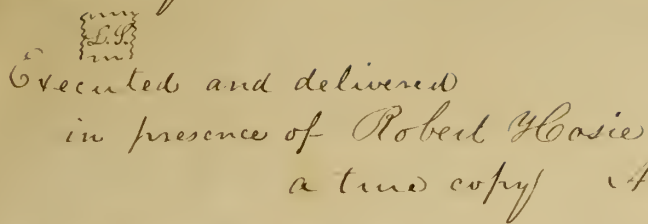 L.S.
Executed and delivered
in presence of Robert Hosie
a true copy